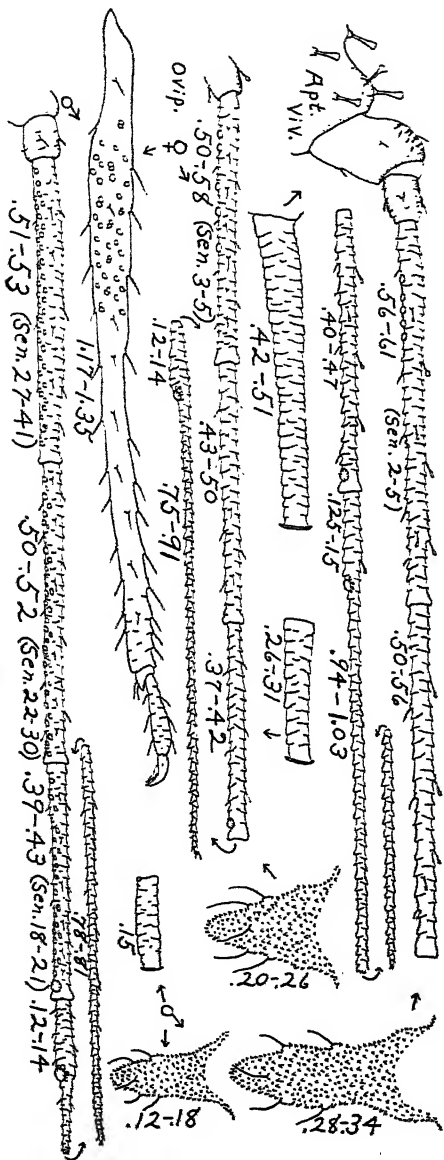 Apt.
Viv.
.56-.61 (Sen. 2-5)
.50-.56
.40-.47
.125-.15
.94-1.03
.42-.51
.26-.31
.28-.34
Ovip.
♀
.50-.58 (Sen. 3-5)
.43-.50
.37-.42
.12-.14
.75-.91
.20-.26
1.17-1.33
♂
.15
.12-.18
♂
.51-.53 (Sen. 27-41)
.50-.52 (Sen. 22-30)
.39-.43 (Sen. 18-21)
.12-.14
.78-.81